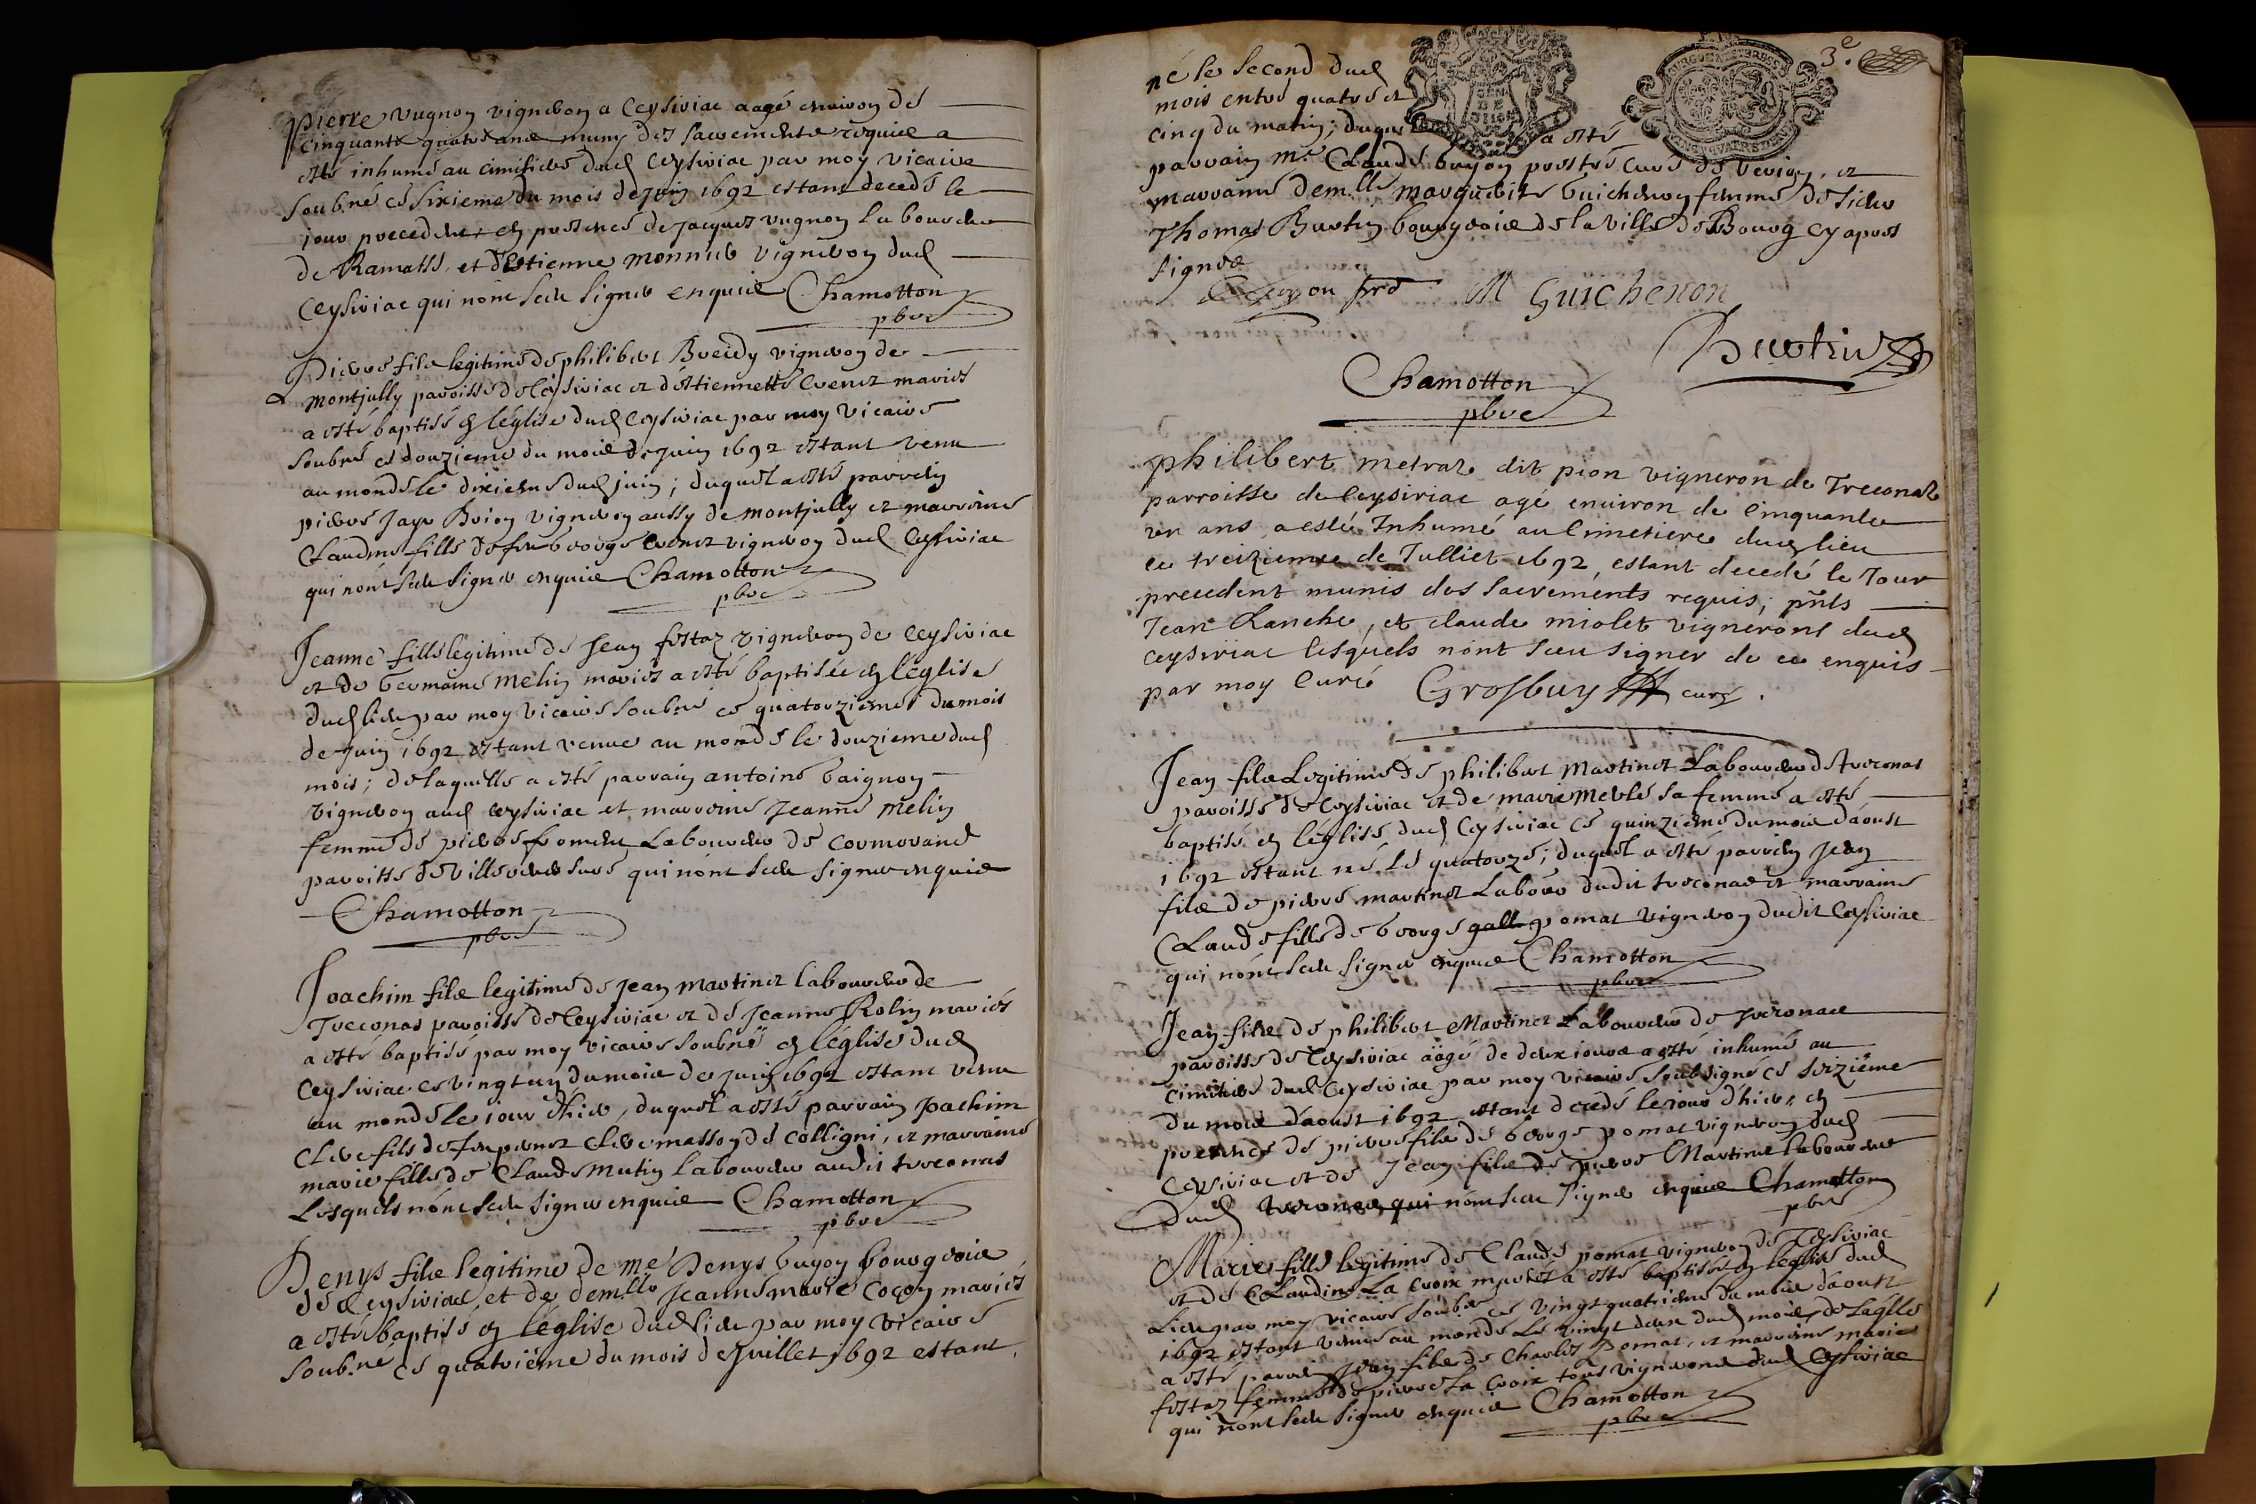 Pierre vugnon vigneron a Ceysiriac aagé environ de
cinquante quatre ans muny des sacrements requis a
esté inhumé au cimitiere dud Ceysiriac par moy vicaire
soub.né ce sixieme du mois de juin 1692 estant decedé le
jour precedent, en presence de jacques vugnon laboureur
de Ramasse, et d'Estienne monnier vigneron dud
Ceysiriac qui nont sceu signer enquis Chamotton
pbre
Pierre fils legitime de philibert Breidy vigneron de
montjully paroisse de Ceysiriac et d'estiennette mariés
a esté baptisé en léglise dud Ceysiriac par moy vicaire
soubné ce douzieme du mois de juin 1692 estant venu
au monde le dixieme dud juin; duquel a esté parrein
pierre vigneron aussy de montjully et marreine
Claudine fille de feu george vigneron dud Ceysiriac
qui nont sceu signer enquis Chamotton
pbre
Jeanne fille legitime de Jean fostaz vigneron de Ceysiriac
et de germaine melin mariés a esté baptisée en léglise
dud lieu par moy vicaire soubné ce quatorzieme du mois
de juin 1692 estant venue au monde le douzieme dud
mois; de laquelle a esté parrain antoine gaignon
vigneron aud Ceysiriac et marreine Jeanne melin
femme de pierre froment Laboureur de Cormorand
paroisse de villereversure qui nont sceu signer enquis
Chamotton
pbre
Joachim fils legitime de jean martinet laboureur de
Treconas paroisse de Ceysiriac et de Jeanne Rolin mariés
a esté baptisé par moy vicaire soubné en léglise dud
Ceysiriac ce vingt un du mois de juin 1692 estant venu
au monde le jour d'hier, duquel a esté parrain Joachim
Clerc fils de feu Clerc masson de Colligni, et marraine
marie fille de Claude mutin laboureur audit treconas
Lesquels nont sceu signer enquis Chamotton
pbre
Denys fils legitime de me Denys guyon bourgeois
de Ceysiriac, et de demlle Jeanne marie Coçon mariés
a esté baptisé en léglise dud lieu par moy vicaire
soub.né ce quatrieme du mois de juillet 1692 estant
3e
né le second dud
mois entre quatre et
cinq du matin; duquel a esté
parrain mre Claude guyon prestre Curé de , et
marranne demlle marguerite guichenon femme de sieur
Thomas Burtin bourgeois de la ville de Bourg cy apres
signés
Guyon prd M Guichenon
Burtin
Chamotton
pbre
philibert metraz dit pion vigneron de Treconaz
parroisse de Ceysiriac agé environ de cinquante
un ans a esté Inhumé au Cimetiere dud lieu
ce treizieme de Julliet 1692, estant decedé le Jour
precedent munis des sacrements requis, pnts
Jean , et claude miolet vignerons dud
Ceysiriac lesquels nont sceu signer de ce enquis
par moy Curé Grosbuy curé.
Jean fils Legitime de philibert Martinet Laboureur de treconas
paroisse de Ceysiriac et de marie merle sa femme a esté
baptisé en léglise dud Ceysiriac ce quinzieme du mois d'aoust
1692 estant né le quatorze; duquel a esté parrein Jean
fils de pierre martinet Labour dudit treconas et marraine
Claude fille de george gall pomat vigneron dudit Ceysiriac
qui nont sceu signer enquis Chamotton
pbre
Jean fils de philibert Martinet Laboureur de treconas
paroisse de Ceysiriac aagé de deux jours a esté inhumé au
cimitiere dud Ceysiriac par moy vicaire soubsigné ce seizieme
du mois d'aoust 1692 estant decedé le jour d'hier, en
presence de pierre fils de george pomat vigneron dud
Ceysiriac et de Jean fils de pierre Martinet laboureur
dud treconas qui nont sceu signer enquis Chamotton
pbre
Marie fille legitime de Claude pomat vigneron de Ceysiriac
et de Claudine La croix mariés a esté baptisée en léglise dud
Lieu par moy vicaire soubné ce vingt quatrieme du mois d'aoust
1692 estant venue au monde le vingt deux dud mois, de laqlle
a esté parrein Jean fils de Charles pomat, et marreine marie
fostaz femme de pierre La Croix tous vignerons dud Ceysiriac
qui nont sceu signer enquis Chamotton
pbre